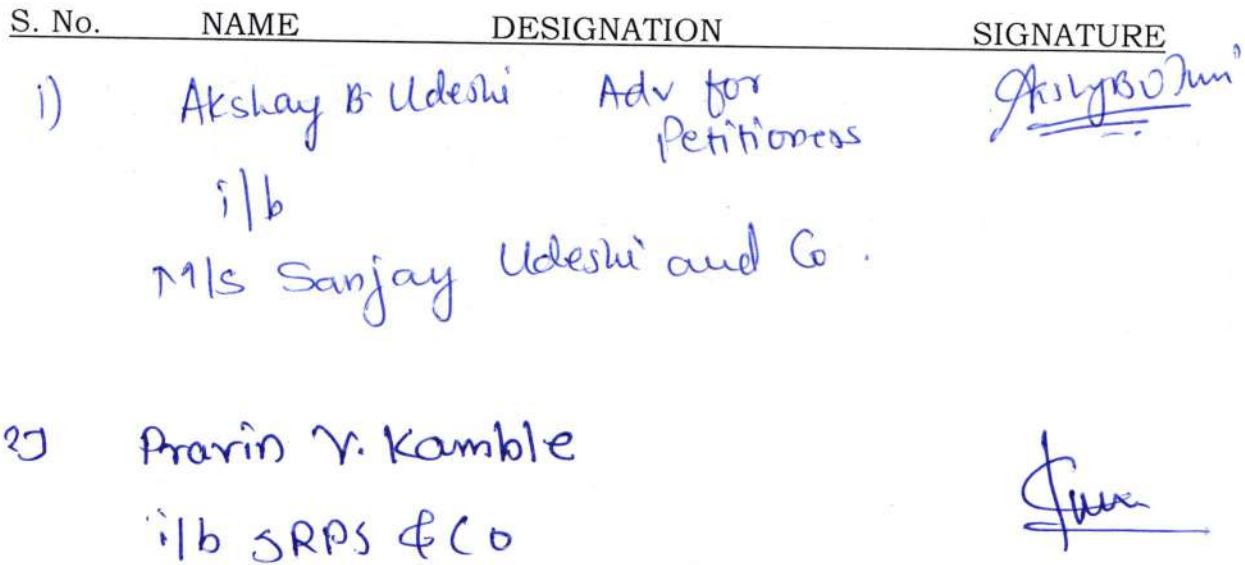 S. No. NAME DESIGNATION SIGNATURE
1) Akshay B Udeshi Adv for
Petitioners
i/b
M/s Sanjay Udeshi and Co.
2) Pravin V. Kamble
i/b SRPS & Co